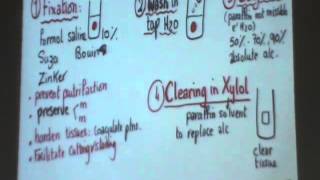 ① Fixation:
formol saline 10%
Susa Bouin
Zinker
• prevent putrifaction
• preserve
• harden tissues: coagulate
• Facilitate Cutting
② Wash in
tap H2O
(paraffin not missible
e H2O)
50% 70% 90%
absolute alc.
④ Clearing in Xylol
paraffin solvent
to replace alc
clear
tissue